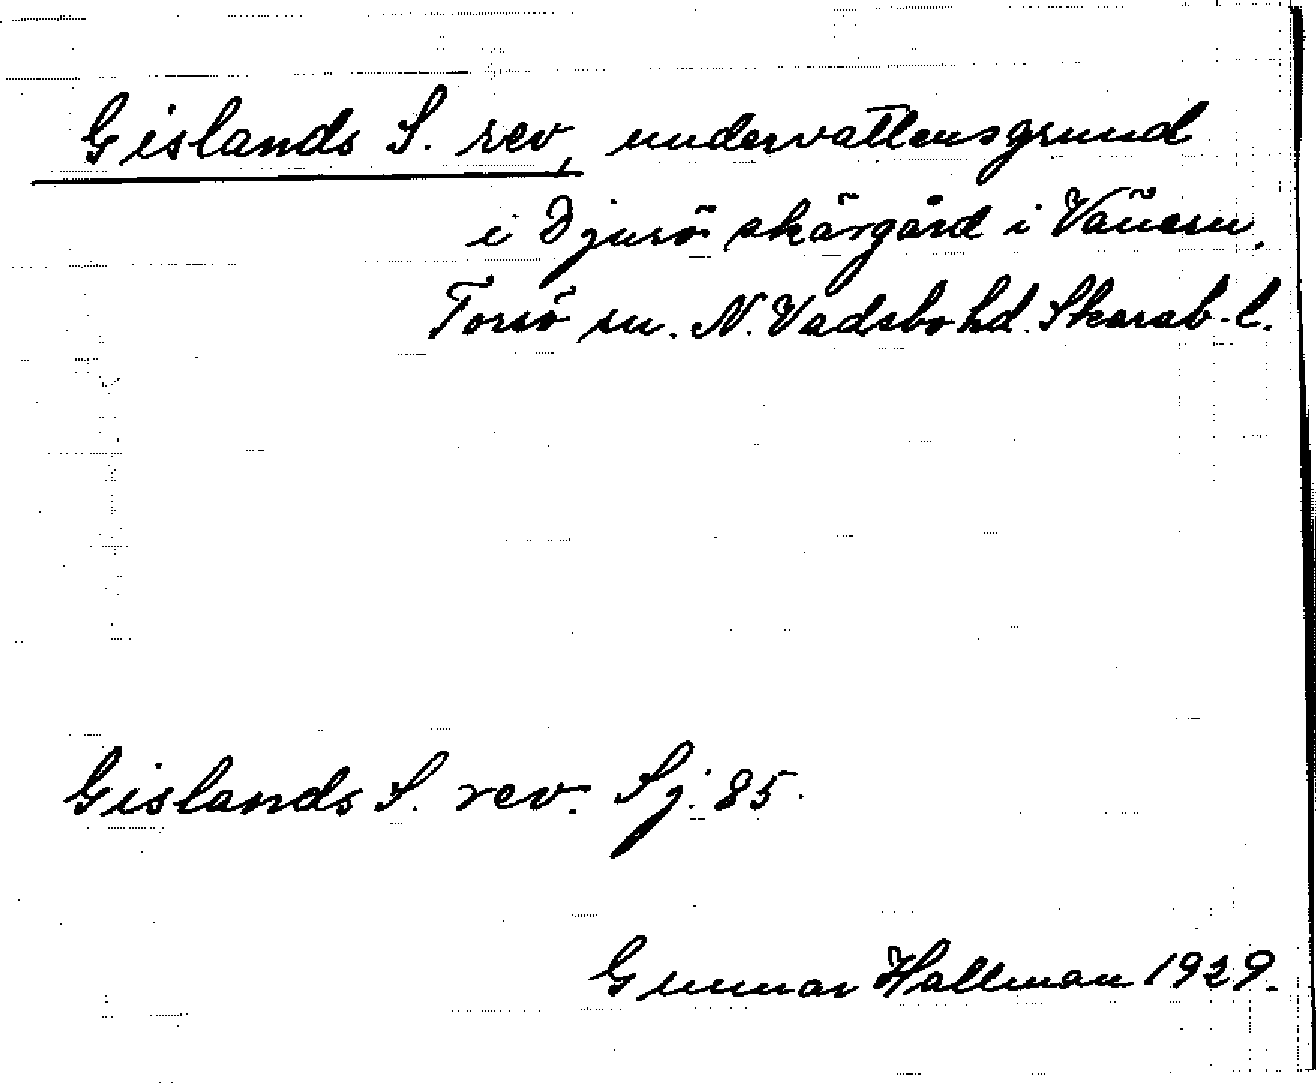 Gislands S. rev, undervattensgrund
i Djurö skärgård i Vänern,
Torsö sn. N. Vadsbo hd. Skarab. l.
Gislands S. rev. Sj. 85.
Gunnar Hallman 1929.